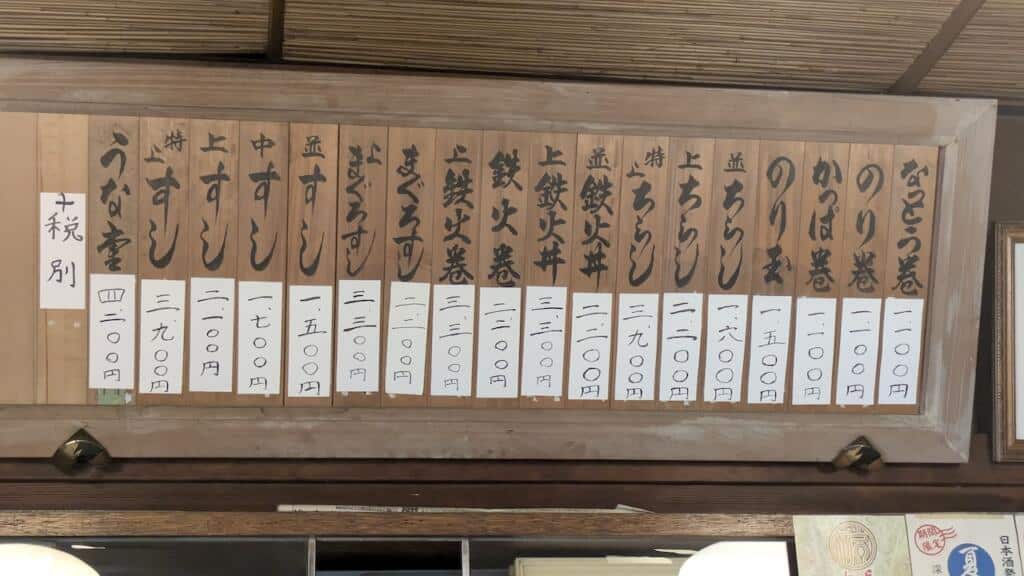 なっとう巻 一、一〇〇円
のり巻 一、一〇〇円
かっぱ巻 一、一〇〇円
のり玉 一、五〇〇円
並ちらし 一、六〇〇円
上ちらし 二、二〇〇円
特上ちらし 三、九〇〇円
並鉄火丼 二、二〇〇円
上鉄火丼 三、三〇〇円
鉄火巻 二、二〇〇円
上鉄火巻 三、三〇〇円
まぐろすし 二、二〇〇円
上まぐろすし 三、三〇〇円
並すし 一、五〇〇円
中すし 一、七〇〇円
上すし 二、一〇〇円
特上すし 三、九〇〇円
うな重 四、二〇〇円
+税別
期間限定
夏
日本酒祭